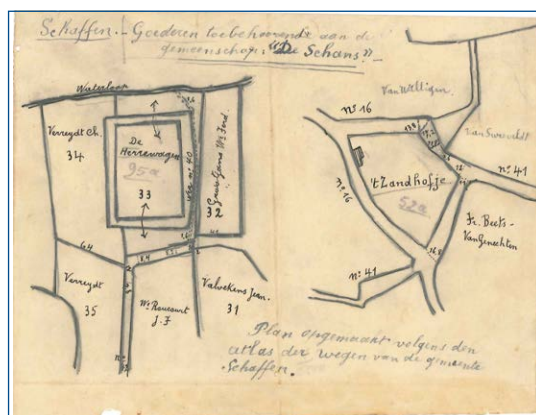 Schaffen. - Goederen toebehoorendt aan de
gemeenschap: "De Schans" -
Waterloop
Verreydt Ch.
34
De
Herrewagen
95a
33
Weg nº 40
32
64
Verreydt
35
We Roucourt
J. F
Valvekens Jean.
31
nº 16
Van Willigen
nº 16
'tZandhofje
52a
nº 41
Fr. Beets-
Van Genechten
nº 41
Plan opgemaakt volgens den
atlas der wegen van de gemeente
Schaffen.